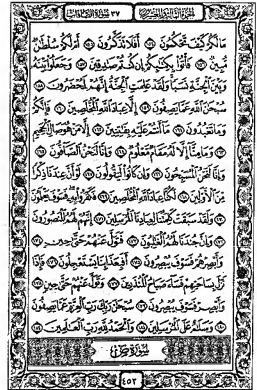 الجزء الثالث والعشرون ٣٧ سورة الصافات
مَا لَكُمْ كَيْفَ تَحْكُمُونَ ١٥٤ أَفَلَا تَذَكَّرُونَ ١٥٥ أَمْ لَكُمْ سُلْطَٰنٌ
مُّبِينٌ ١٥٦ فَأْتُوا۟ بِكِتَٰبِكُمْ إِن كُنتُمْ صَٰدِقِينَ ١٥٧ وَجَعَلُوا۟ بَيْنَهُۥ
وَبَيْنَ ٱلْجِنَّةِ نَسَبًا وَلَقَدْ عَلِمَتِ ٱلْجِنَّةُ إِنَّهُمْ لَمُحْضَرُونَ ١٥٨
سُبْحَٰنَ ٱللَّهِ عَمَّا يَصِفُونَ ١٥٩ إِلَّا عِبَادَ ٱللَّهِ ٱلْمُخْلَصِينَ ١٦٠ فَإِنَّكُمْ
وَمَا تَعْبُدُونَ ١٦١ مَآ أَنتُمْ عَلَيْهِ بِفَٰتِنِينَ ١٦٢ إِلَّا مَنْ هُوَ صَالِ ٱلْجَحِيمِ
١٦٣ وَمَا مِنَّآ إِلَّا لَهُۥ مَقَامٌ مَّعْلُومٌ ١٦٤ وَإِنَّا لَنَحْنُ ٱلصَّآفُّونَ
١٦٥ وَإِنَّا لَنَحْنُ ٱلْمُسَبِّحُونَ ١٦٦ وَإِن كَانُوا۟ لَيَقُولُونَ ١٦٧ لَوْ أَنَّ عِندَنَا ذِكْرًا
مِّنَ ٱلْأَوَّلِينَ ١٦٨ لَكُنَّا عِبَادَ ٱللَّهِ ٱلْمُخْلَصِينَ ١٦٩ فَكَفَرُوا۟ بِهِۦ فَسَوْفَ يَعْلَمُونَ
١٧٠ وَلَقَدْ سَبَقَتْ كَلِمَتُنَا لِعِبَادِنَا ٱلْمُرْسَلِينَ ١٧١ إِنَّهُمْ لَهُمُ ٱلْمَنصُورُونَ
١٧٢ وَإِنَّ جُندَنَا لَهُمُ ٱلْغَٰلِبُونَ ١٧٣ فَتَوَلَّ عَنْهُمْ حَتَّىٰ حِينٍ ١٧٤
وَأَبْصِرْهُمْ فَسَوْفَ يُبْصِرُونَ ١٧٥ أَفَبِعَذَابِنَا يَسْتَعْجِلُونَ ١٧٦ فَإِذَا
نَزَلَ بِسَاحَتِهِمْ فَسَآءَ صَبَاحُ ٱلْمُنذَرِينَ ١٧٧ وَتَوَلَّ عَنْهُمْ حَتَّىٰ حِينٍ
١٧٨ وَأَبْصِرْ فَسَوْفَ يُبْصِرُونَ ١٧٩ سُبْحَٰنَ رَبِّكَ رَبِّ ٱلْعِزَّةِ عَمَّا يَصِفُونَ
١٨٠ وَسَلَٰمٌ عَلَى ٱلْمُرْسَلِينَ ١٨١ وَٱلْحَمْدُ لِلَّهِ رَبِّ ٱلْعَٰلَمِينَ ١٨٢
سُورَةُ صٓ
٤٥٢